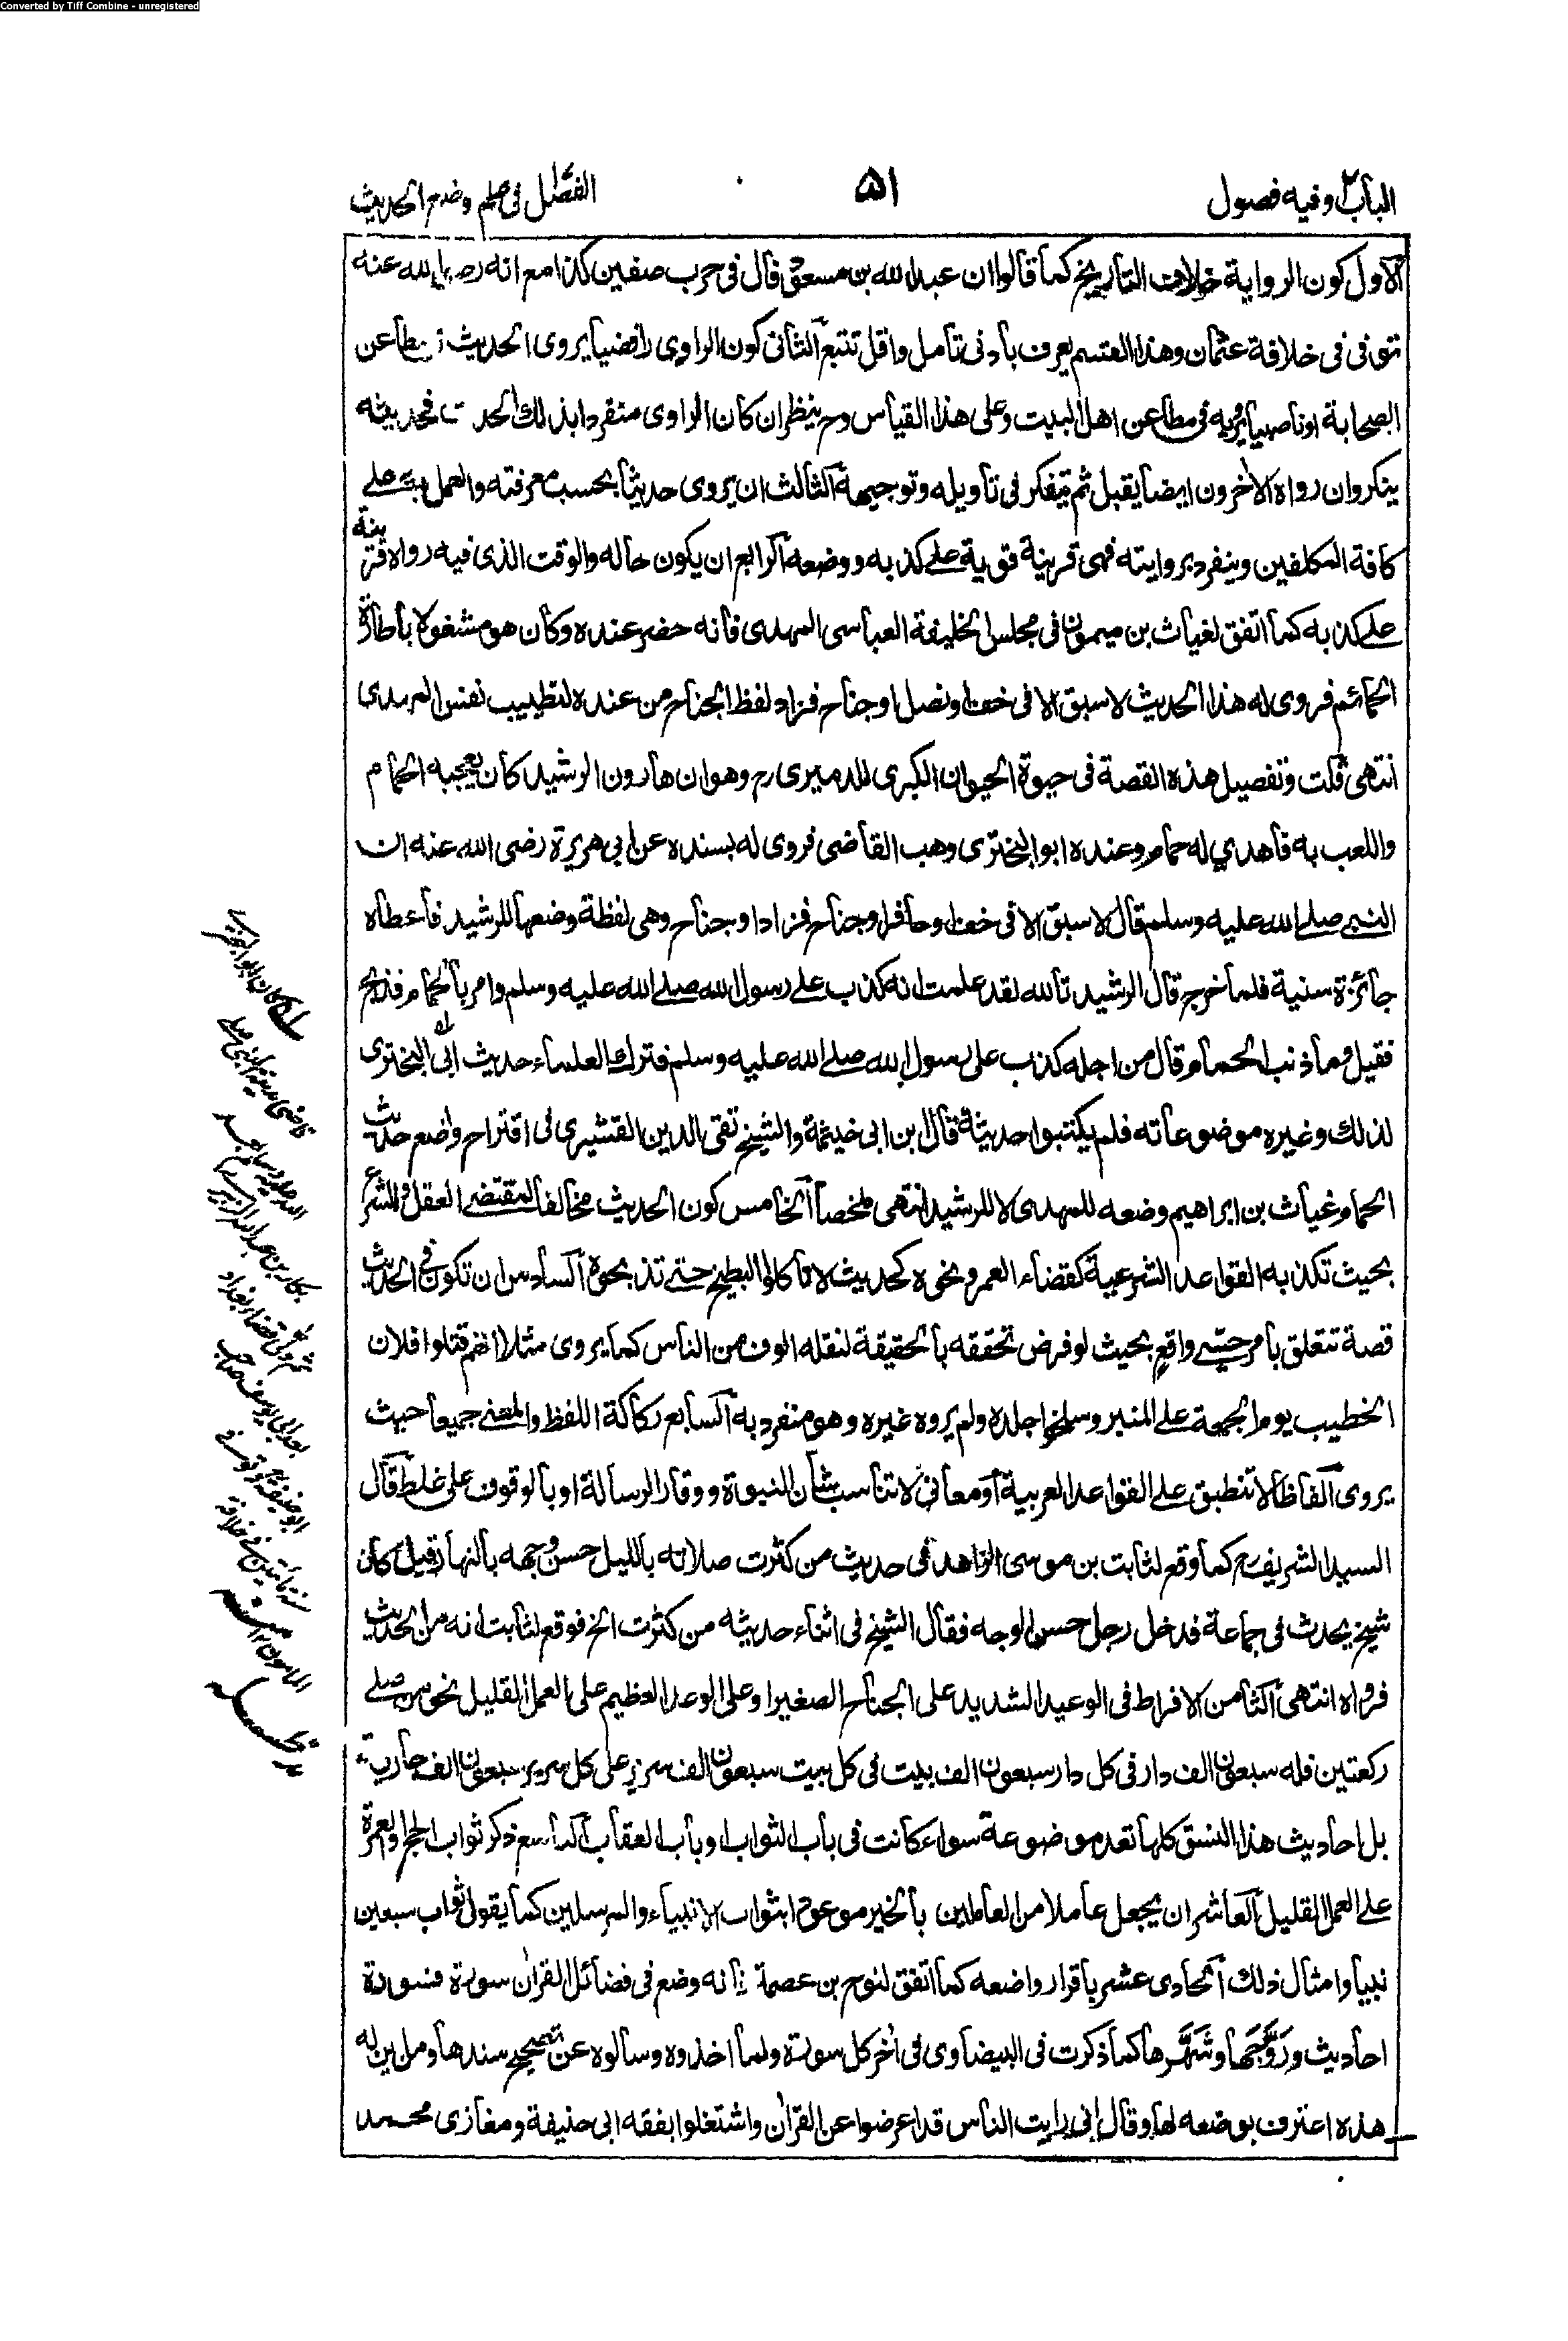 Converted by Tiff Combine - unregistered
الباب٢ وفيه فصول
٥١
الفصل في علم وضع الحديث
الاول كون الرواية خلاف التاريخ كما قالوا ان عبد الله بن مسعود قال في حرب صفين كذا مع انه رضي الله عنه
توفى في خلافة عثمان وهذا القسم يعرف بادنى تامل واقل تتبع الثانى كون الراوى رافضيا يروى الحديث في مطاعن
الصحابة او ناصبيا يرويه في مطاعن اهل البيت وعلى هذا القياس وح ينظر ان كان الراوى منفردا بذلك الحديث فحديثه
ينكر وان رواه الآخرون ايضا يقبل ثم يتفكر في تاويله وتوجيهه الثالث ان يروى حديثا يحسب معرفته والعمل به على
كافة المكلفين وينفرد بروايته فهى قرينة قوية على كذبه ووضعه الرابع ان يكون حاله والوقت الذى فيه رواه قرينة
على كذبه كما اتفق لغياث بن ميمون في مجلس الخليفة العباسى المهدى فانه حضر عنده وكان هو مشغولا باطارة
الحمائم فروى له هذا الحديث لا سبق الا في خف او نصل او جناح فزاد لفظ الجناح من عنده لتطييب نفس المهدى
انتهى قلت وتفصيل هذه القصة في حيوة الحيوان الكبرى للدميرى رح وهو ان هارون الرشيد كان يعجبه الحمام
واللعب به فاهدي له حمام وعنده ابو البخترى وهب القاضى فروى له بسنده عن ابي هريرة رضى الله عنه ان
النبي صلى الله عليه وسلم قال لا سبق الا في خف او حافر او جناح فزاد او جناح وهى لفظة وضعها للرشيد فاعطاه
جائزة سنية فلما خرج قال الرشيد تالله لقد علمت انه كذب على رسول الله صلى الله عليه وسلم وامر بالحمام فذبح
فقيل وما ذنب الحمام قال من اجله كذب على رسول الله صلى الله عليه وسلم فترك العلماء حديث ابى البخترى
لذلك وغيره موضوعاته فلم يكتبوا حديثه قال ابن ابى خيثمة والشيخ تقى الدين القشيرى فى اقتراح واضع حديث
الحمام غياث بن ابراهيم وضعه للمهدى لا للرشيد انتهى ملخصا الخامس كون الحديث مخالفا لمقتضى العقل والشرع
بحيث تكذبه القواعد الشرعية كقضاء العمر ونحوه كحديث لا تاكلوا البطيخ حتى تذبحوه السادس ان تكون في الحديث
قصة تتعلق بامر حسّي واقع بحيث لو فرض تحققه بالحقيقة لنقله الوف من الناس كما يروى مثلا انهم قتلوا فلان
الخطيب يوم الجمعة على المنبر وسلخوا جلده ولم يروه غيره وهو منفرد به السابع ركاكة اللفظ والمعنى جميعا حيث
يروى الفاظا لا تنطبق على القواعد العربية او معانى لا تناسب شان النبوة ووقار الرسالة او بالوقوف على غلط قال
السيد الشريف رح كما وقع لثابت بن موسى الزاهد في حديث من كثرت صلاته بالليل حسن وجهه بالنهار قيل كان
شيخ يحدث في جماعة فدخل رجل حسن الوجه فقال الشيخ في اثناء حديثه من كثرت الخ فوقع لثابت انه من الحديث
فرواه انتهى الثامن الافراط في الوعيد الشديد على الجناح الصغير او على الوعد العظيم على العمل القليل نحو من صلى
ركعتين فله سبعون الف دار في كل دار سبعون الف بيت في كل بيت سبعون الف سرير على كل سرير سبعون الف جارية
بل احاديث هذا النسق كلها تعد موضوعة سواء كانت في باب الثواب او باب العقاب التاسع ذكر ثواب الحج والعمرة
على العمل القليل العاشر ان يجعل عاملا من العاملين بالخير موعودا بثواب الانبياء والمرسلين كما يقول ثواب سبعين
نبيا وامثال ذلك الحادى عشر باقرار واضعه كما اتفق لنوح بن عصمة انه وضع في فضائل القرآن سورة فسورة
احاديث ورَوَّجَها وشَهَّرها كما ذكرت في البيضاوى في آخر كل سورة ولما اخذوه وسالوه عن تصحيح سندها ومن اين له
هذه اعترف بوضعه لها وقال انى رايت الناس قد اعرضوا عن القرآن واشتغلوا بفقه ابى حنيفة ومغازى محمد
كان ابو البخترى
قاضى مدينة النبى صلى
بكار بن عبد الله
ثم ولى قضاء بغداد
بعد ابى يوسف صاحب
ابو حنيفة وتوفى
سنة مائتين في خلافة
المامون